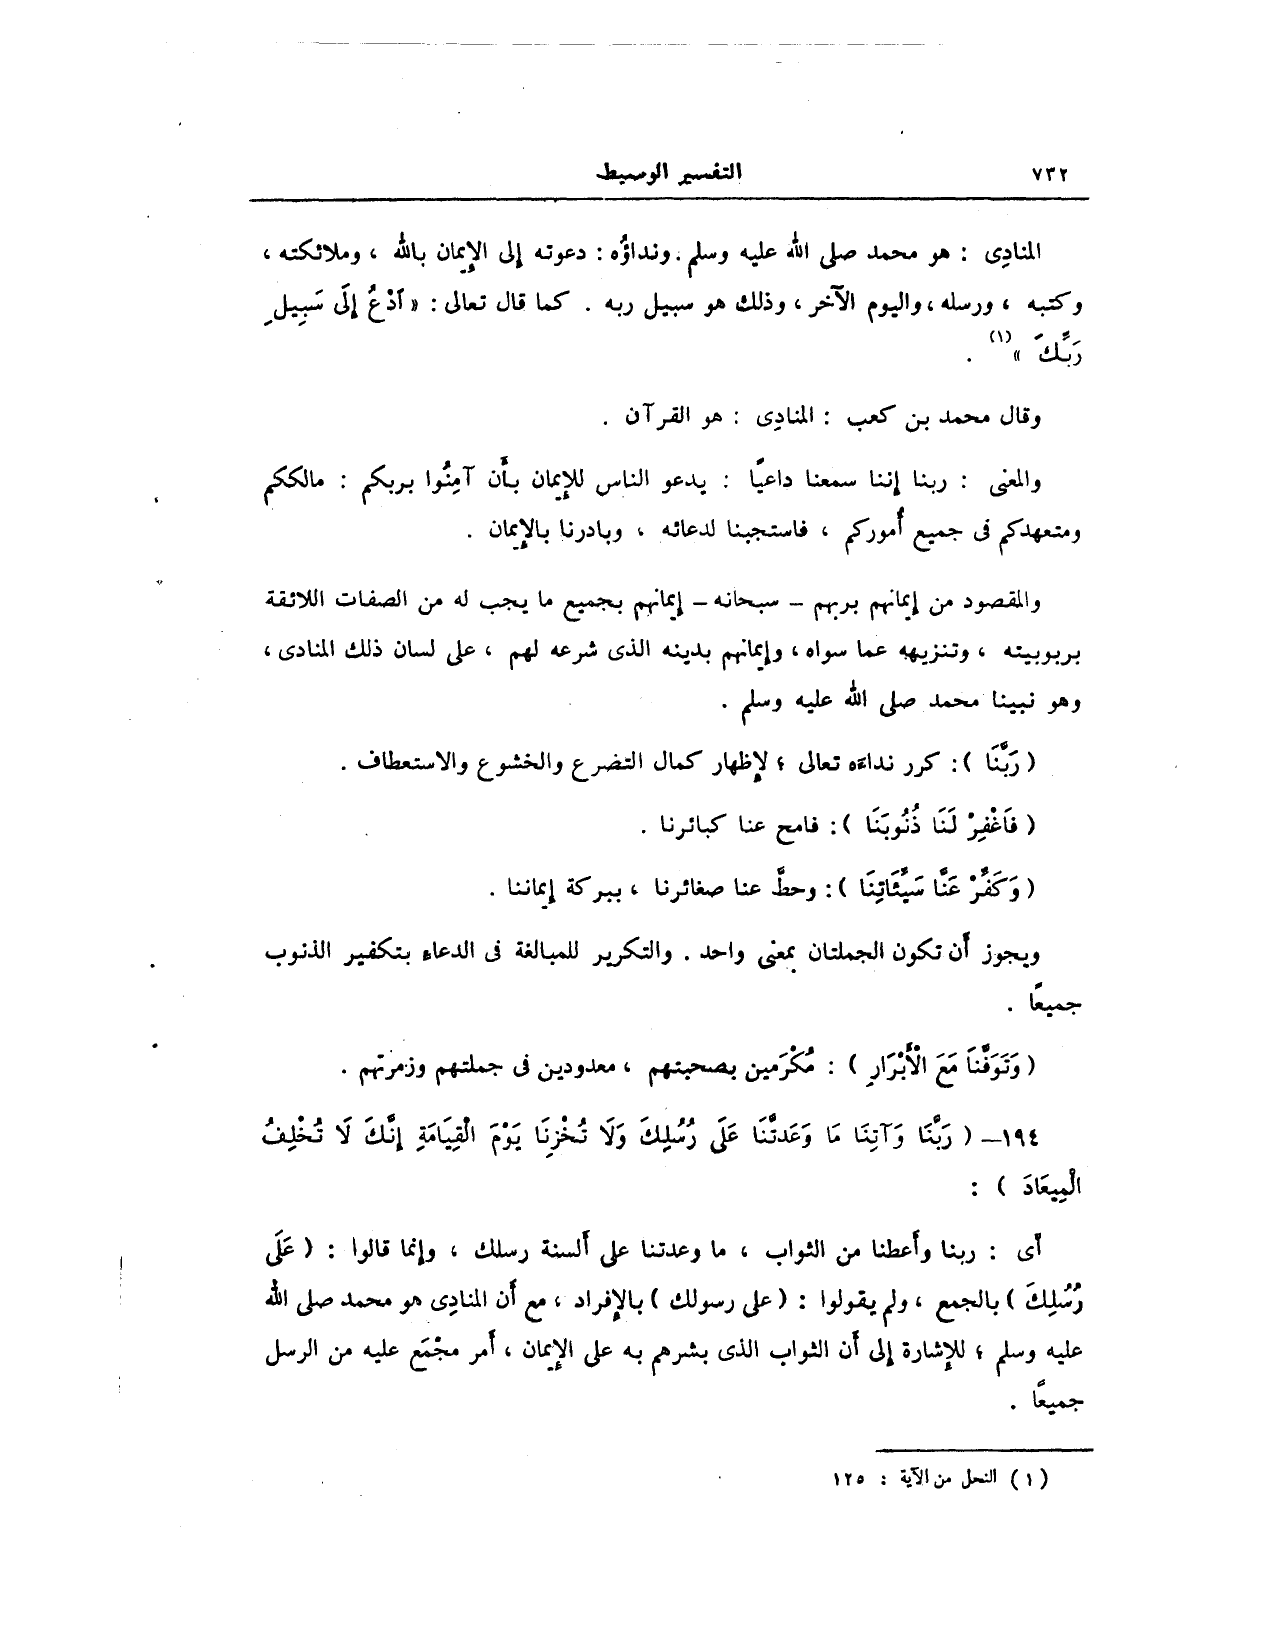 ٧٣٢ التفسير الوسيط
المنادِى : هو محمد صلى الله عليه وسلم . ونداؤُه : دعوته إلى الإِيمان بالله ، وملائكته ،
وكتبه ، ورسله ، واليوم الآخر ، وذلك هو سبيل ربه . كما قال تعالى : « ٱدْعُ إِلَى سَبِيلِ
رَبِّكَ » (١) .
وقال محمد بن كعب : المنادِى : هو القرآن .
والمعنى : ربنا إننا سمعنا داعيًا : يدعو الناس للإِيمان بأَن آمِنُوا بربكم : مالككم
ومتعهدكم فى جميع أُموركم ، فاستجبنا لدعائه ، وبادرنا بالإِيمان .
والمقصود من إيمانهم بربهم – سبحانه – إيمانهم بجميع ما يجب له من الصفات اللائقة
بربوبيته ، وتنزيهه عما سواه ، وإيمانهم بدينه الذى شرعه لهم ، على لسان ذلك المنادى ،
وهو نبينا محمد صلى الله عليه وسلم .
( رَبَّنَا ) : كرر نداءَه تعالى ؛ لإِظهار كمال التضرع والخشوع والاستعطاف .
( فَاغْفِرْ لَنَا ذُنُوبَنَا ) : فامح عنا كبائرنا .
( وَكَفِّرْ عَنَّا سَيِّئَاتِنَا ) : وحطَّ عنا صغائرنا ، ببركة إيماننا .
ويجوز أَن تكون الجملتان بمعنى واحد . والتكرير للمبالغة فى الدعاءِ بتكفير الذنوب
جميعًا .
( وَتَوَفَّنَا مَعَ الْأَبْرَارِ ) : مُكْرَمين بصحبتهم ، معدودين فى جملتهم وزمرتهم .
١٩٤ – ( رَبَّنَا وَآتِنَا مَا وَعَدتَّنَا عَلَى رُسُلِكَ وَلَا تُخْزِنَا يَوْمَ الْقِيَامَةِ إِنَّكَ لَا تُخْلِفُ
الْمِيعَادَ ) :
أى : ربنا وأَعطنا من الثواب ، ما وعدتنا على أَلسنة رسلك ، وإنما قالوا : ( عَلَى
رُسُلِكَ ) بالجمع ، ولم يقولوا : ( على رسولك ) بالإِفراد ، مع أَن المنادِى هو محمد صلى الله
عليه وسلم ؛ للإِشارة إلى أَن الثواب الذى بشرهم به على الإِيمان ، أَمر مجْتَمع عليه من الرسل
جميعًا .
( ١ ) النحل من الآية : ١٢٥